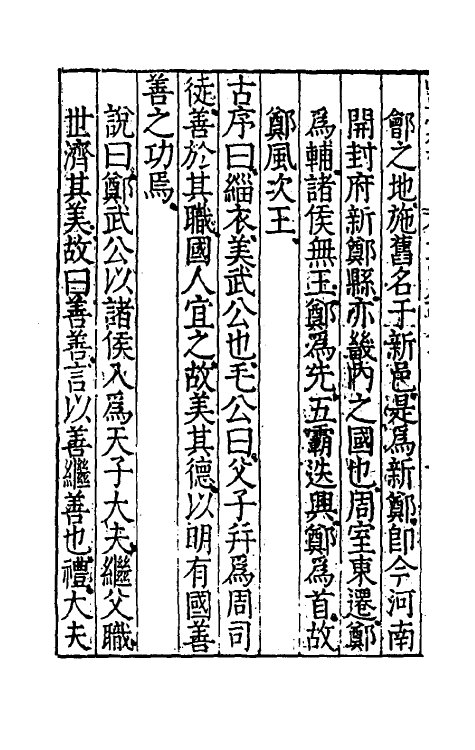 鄶之地施舊名于新邑是爲新鄭即今河南
開封府新鄭縣亦畿內之國也周室東遷鄭
爲輔諸侯無王鄭爲先五霸迭興鄭爲首故
鄭風次王
古序曰緇衣美武公也毛公曰父子幷爲周司
徒善於其職國人宜之故美其德以明有國善
善之功焉
說曰鄭武公以諸侯入爲天子大夫繼父職
世濟其美故曰善善言以善繼善也禮大夫